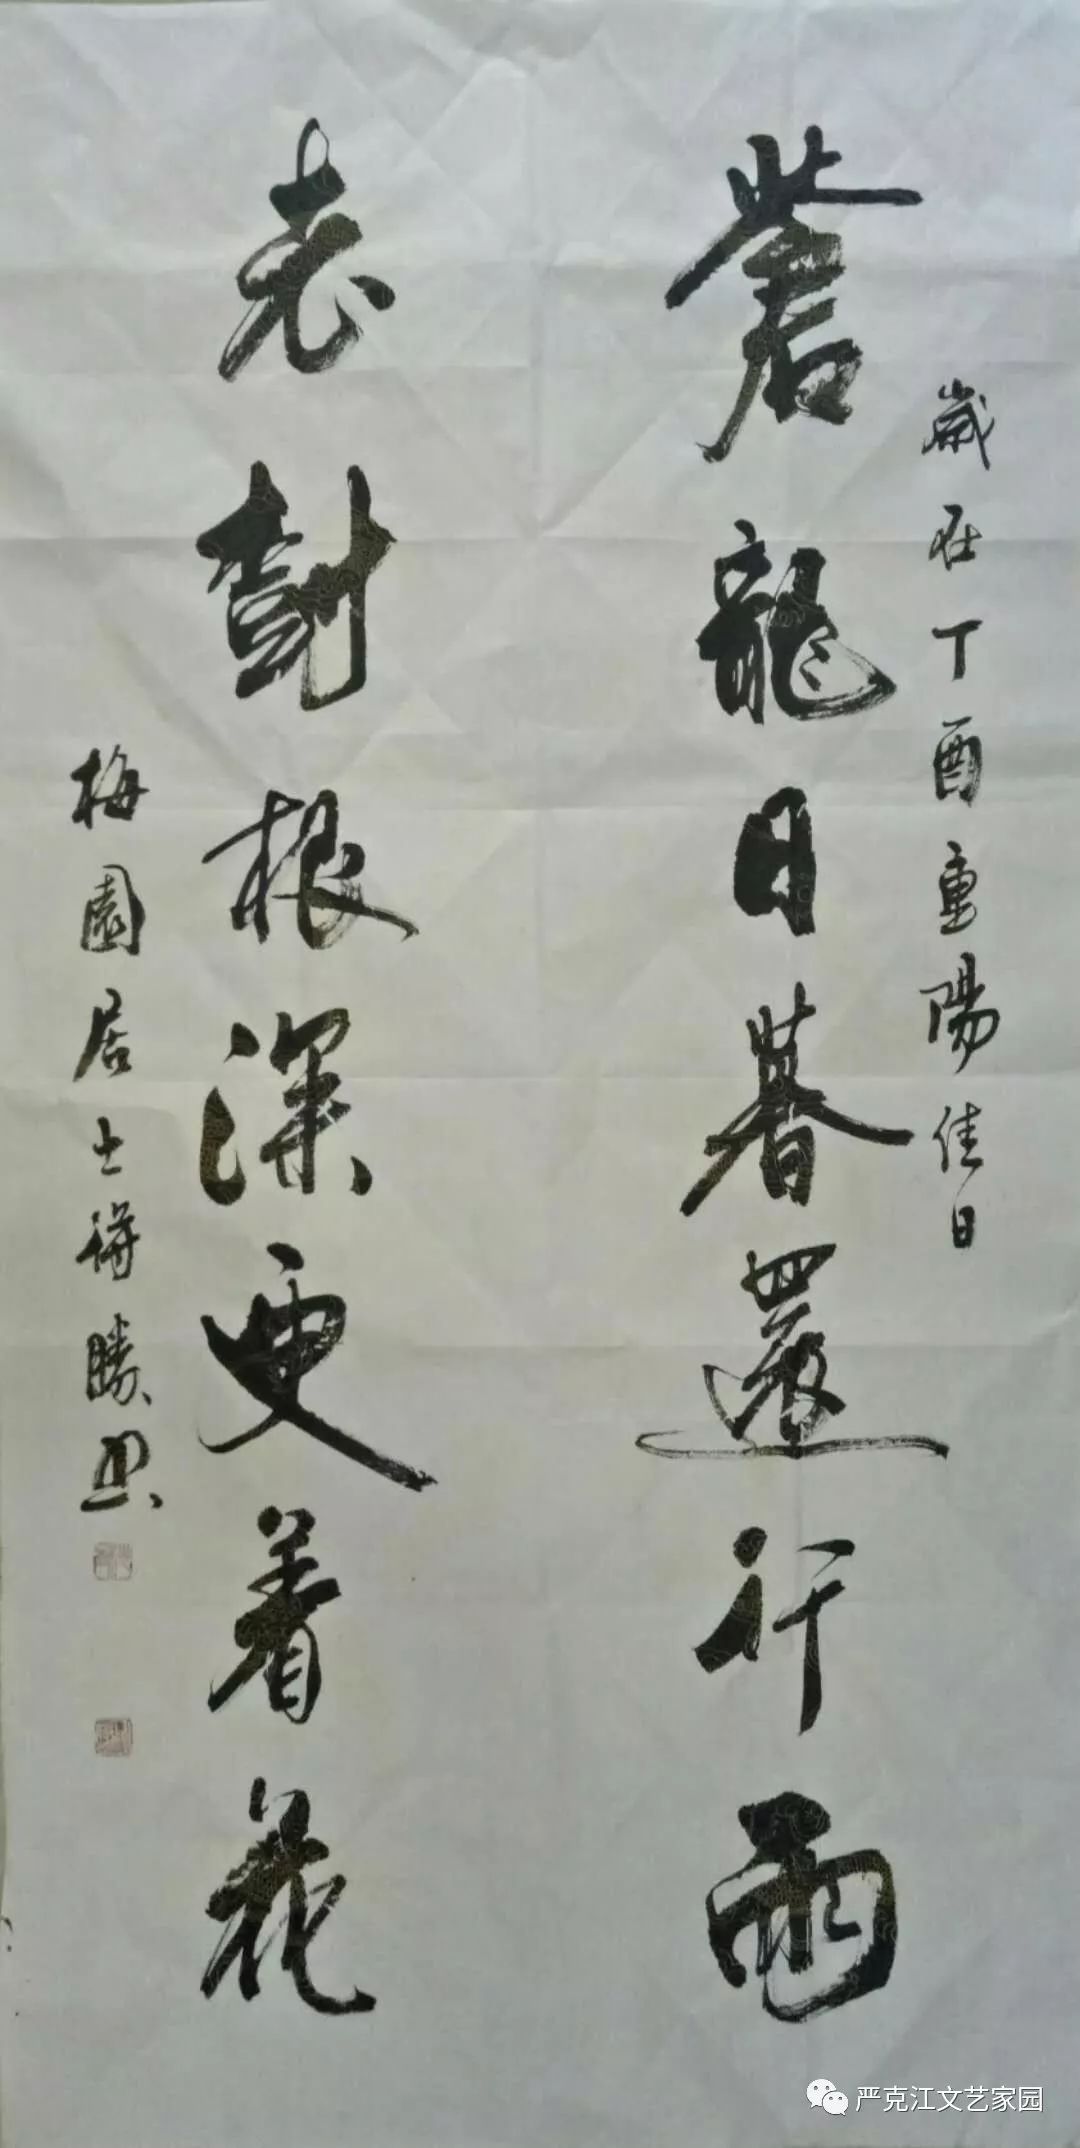 歲在丁酉重陽佳日
蒼龍日暮還行雨
老樹根深更着花
梅園居士勝
严克江文艺家园